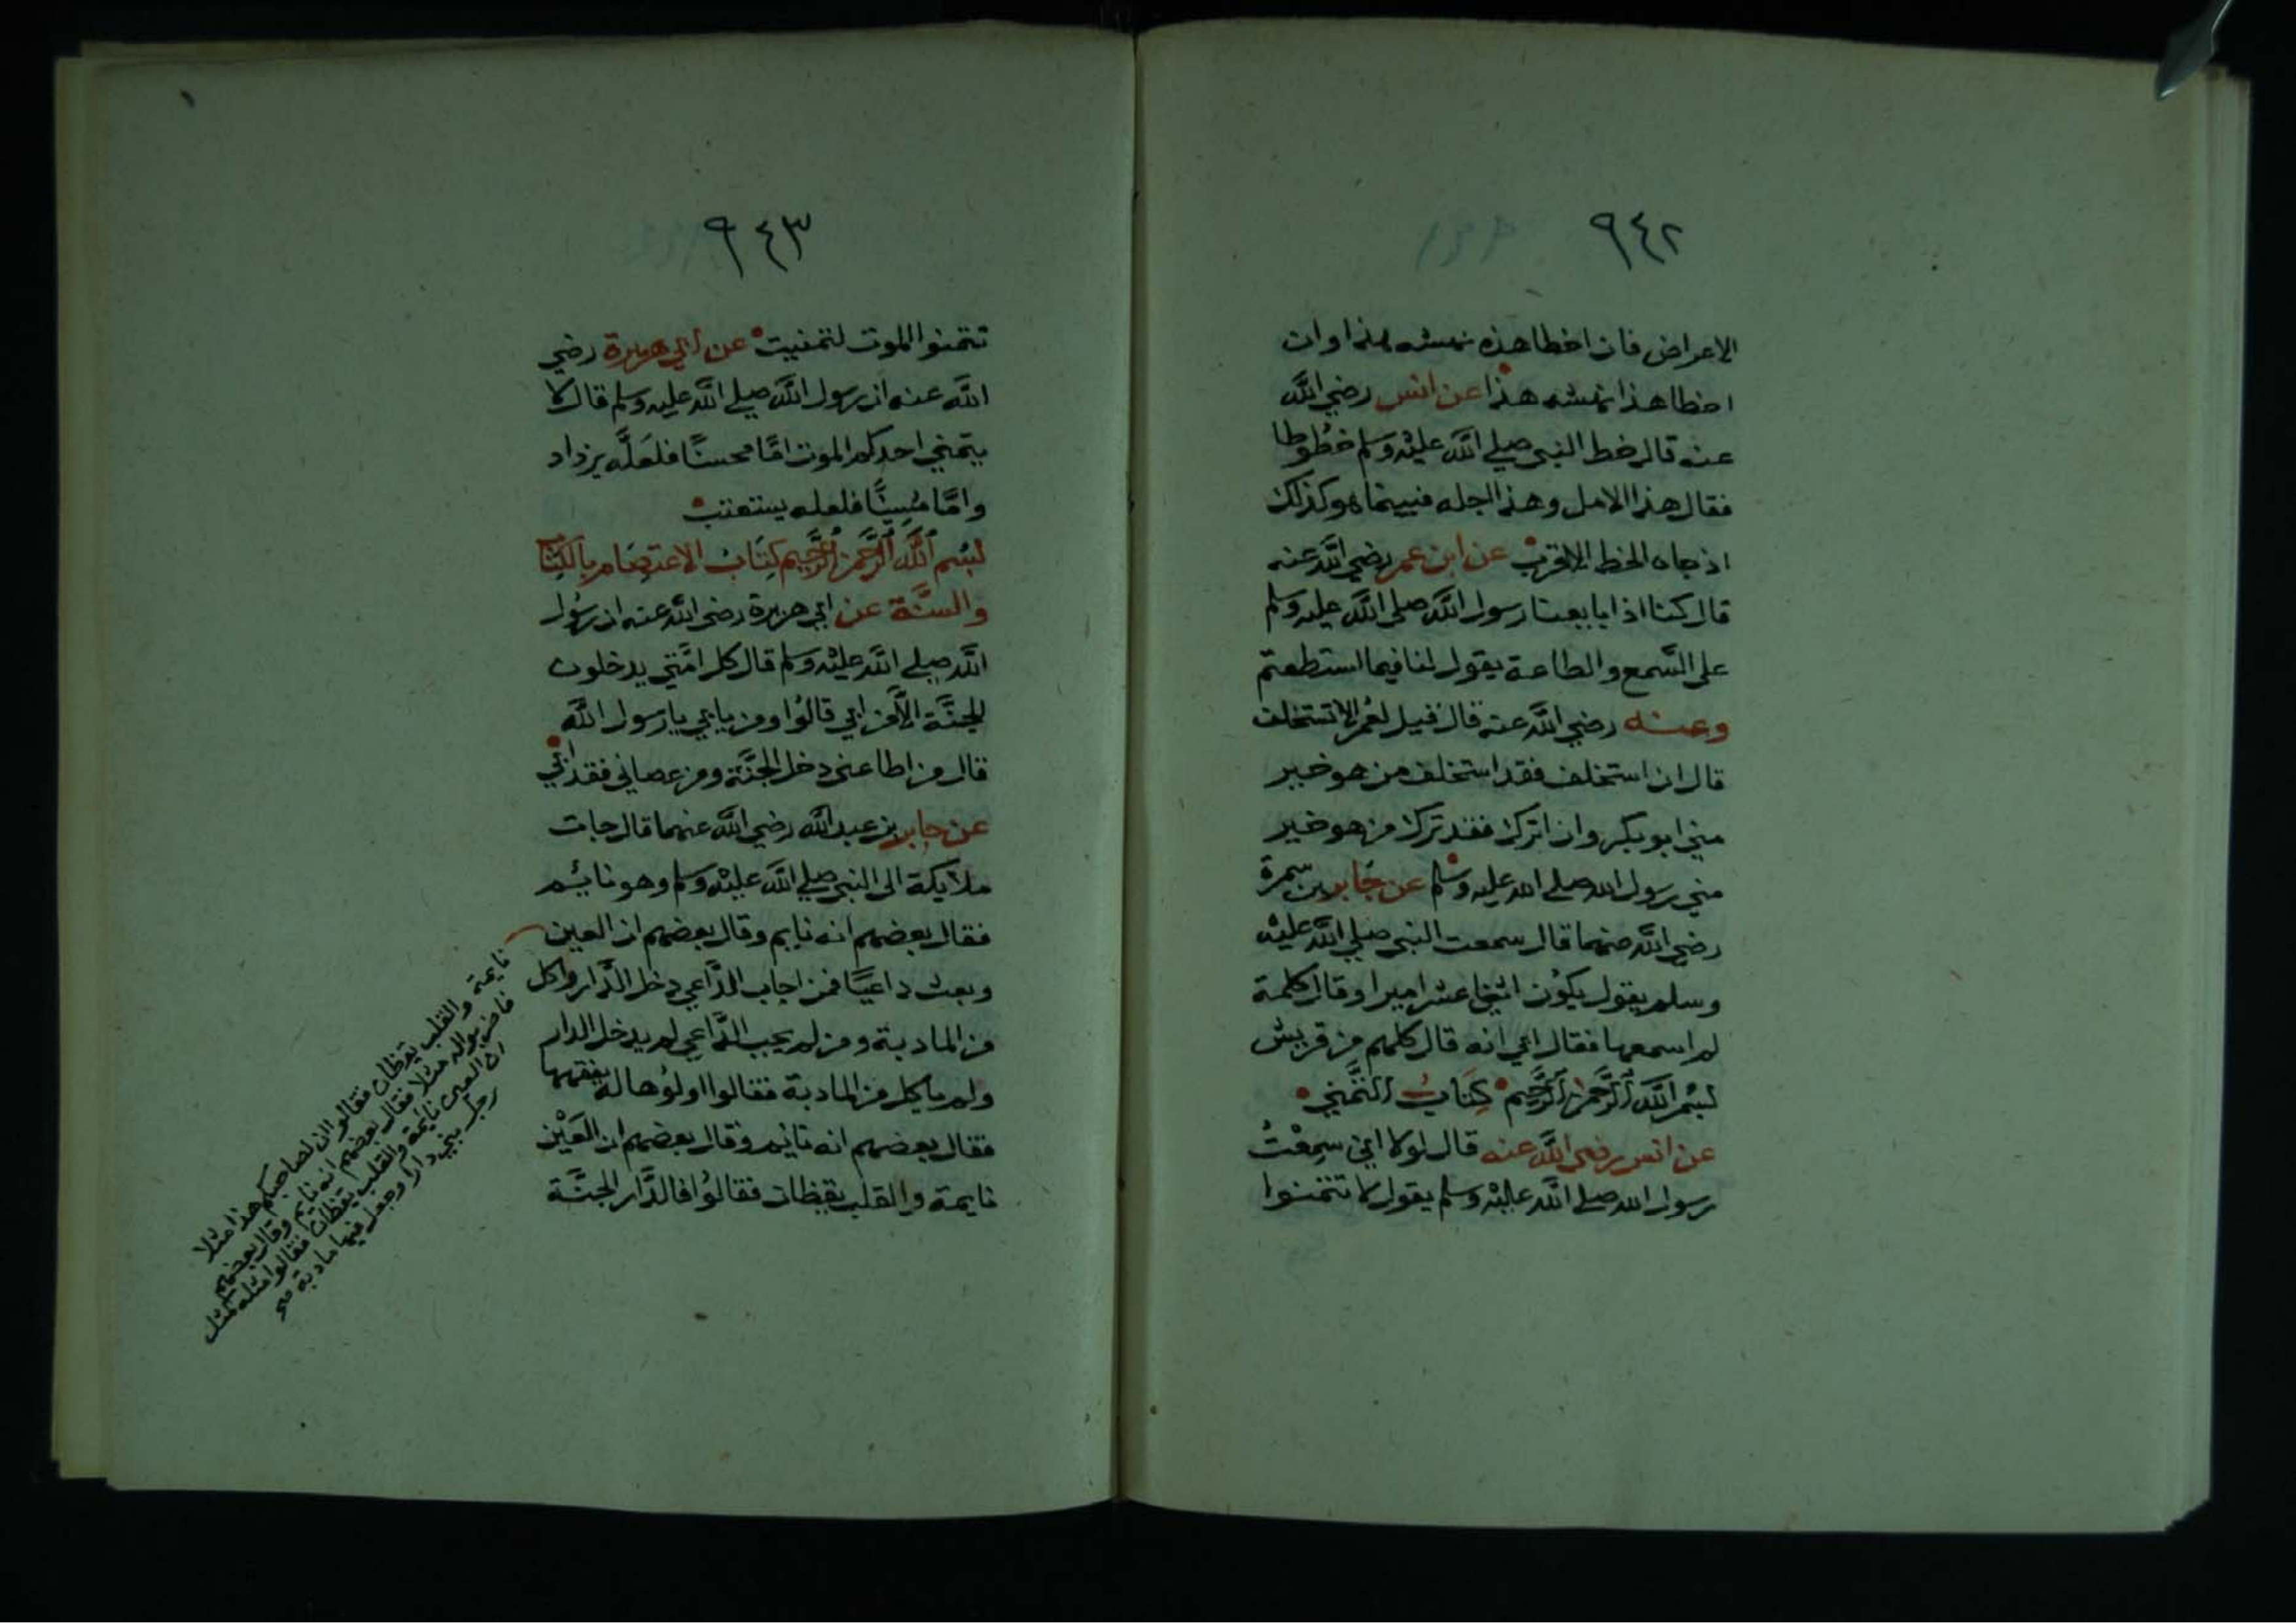 ٩٤٢
الاعراض فان اخطا هذه نهشه هذا وان
اخطا هذا نهشه هذا عن انس رضي الله
عنه قال خط النبي صلى الله عليه وسلم خطوطا
فقال هذا الامل وهذا اجله فبينما هو كذلك
اذ جاه الخط الاقرب عن ابن عمر رضي الله عنه
قال كنا اذا بايعنا رسول الله صلى الله عليه وسلم
على السمع والطاعة يقول لنا فيما استطعتم
وعنه رضي الله عنه قال قيل لعمر الا تستخلف
قال ان استخلف فقد استخلف من هو خير
مني ابو بكر وان اترك فقد ترك من هو خير
مني رسول الله صلى الله عليه وسلم عن جابر بن سمرة
رضي الله عنهما قال سمعت النبي صلى الله عليه
وسلم يقول يكون اثني عشر اميرا وقال كلمة
لم اسمعها فقال ابي انه قال كلهم من قريش
بسم الله الرحمن الرحيم كتاب التمني
عن انس رضي الله عنه قال لولا اني سمعت
رسول الله صلى الله عليه وسلم يقول لا تتمنوا
٩٤٣
تتمنوا الموت لتمنيت عن ابي هريرة رضي
الله عنه ان رسول الله صلى الله عليه وسلم قال لا
يتمني احدكم الموت امّا محسنًا فلعلّه يزداد
وامّا مسيئًا فلعله يستعتب
بسم الله الرحمن الرحيم كتاب الاعتصام بالكتاب
والسنّة عن ابي هريرة رضي الله عنه ان رسول
الله صلى الله عليه وسلم قال كل امّتي يدخلون
الجنّة الّا من ابي قالوا ومن يابي يا رسول الله
قال من اطاعني دخل الجنّة ومن عصاني فقد ابي
عن جابر بن عبد الله رضي الله عنهما قال جات
ملايكة الى النبي صلى الله عليه وسلم وهو نايم
فقال بعضهم انه نايم وقال بعضهم ان العين
نايمة والقلب يقظان فقالوا ان لصاحبكم هذا مثلا
فاضربوا له مثلا فقال بعضهم انه نايم وقال بعضهم
ان العين نايمة والقلب يقظان فقالوا مثله كمثل
رجل بني دارا وجعل فيها مادبة صح
وبعث داعيًا فمن اجاب الدّاعي دخل الدّار واكل
من المادبة ومن لم يجب الدّاعي لم يدخل الدار
ولم ياكل من المادبة فقالوا اولوها له يفقهها
فقال بعضهم انه نايم وقال بعضهم ان العين
نايمة والقلب يقظان فقالوا فالدّار الجنّة